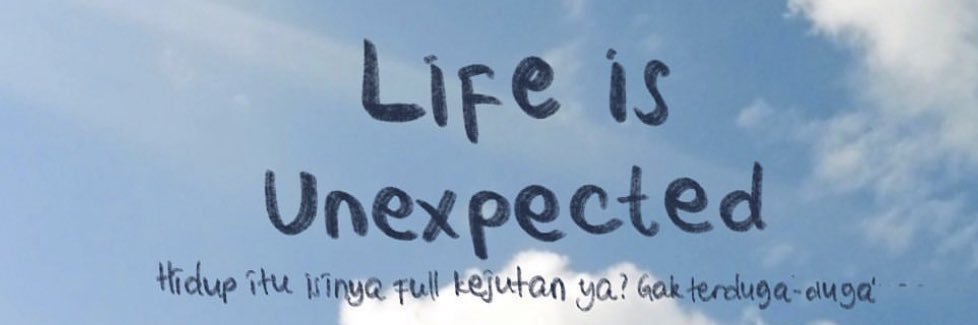 Life is
Unexpected
Hidup itu isinya full kejutan ya? Gak terduga-duga' ...